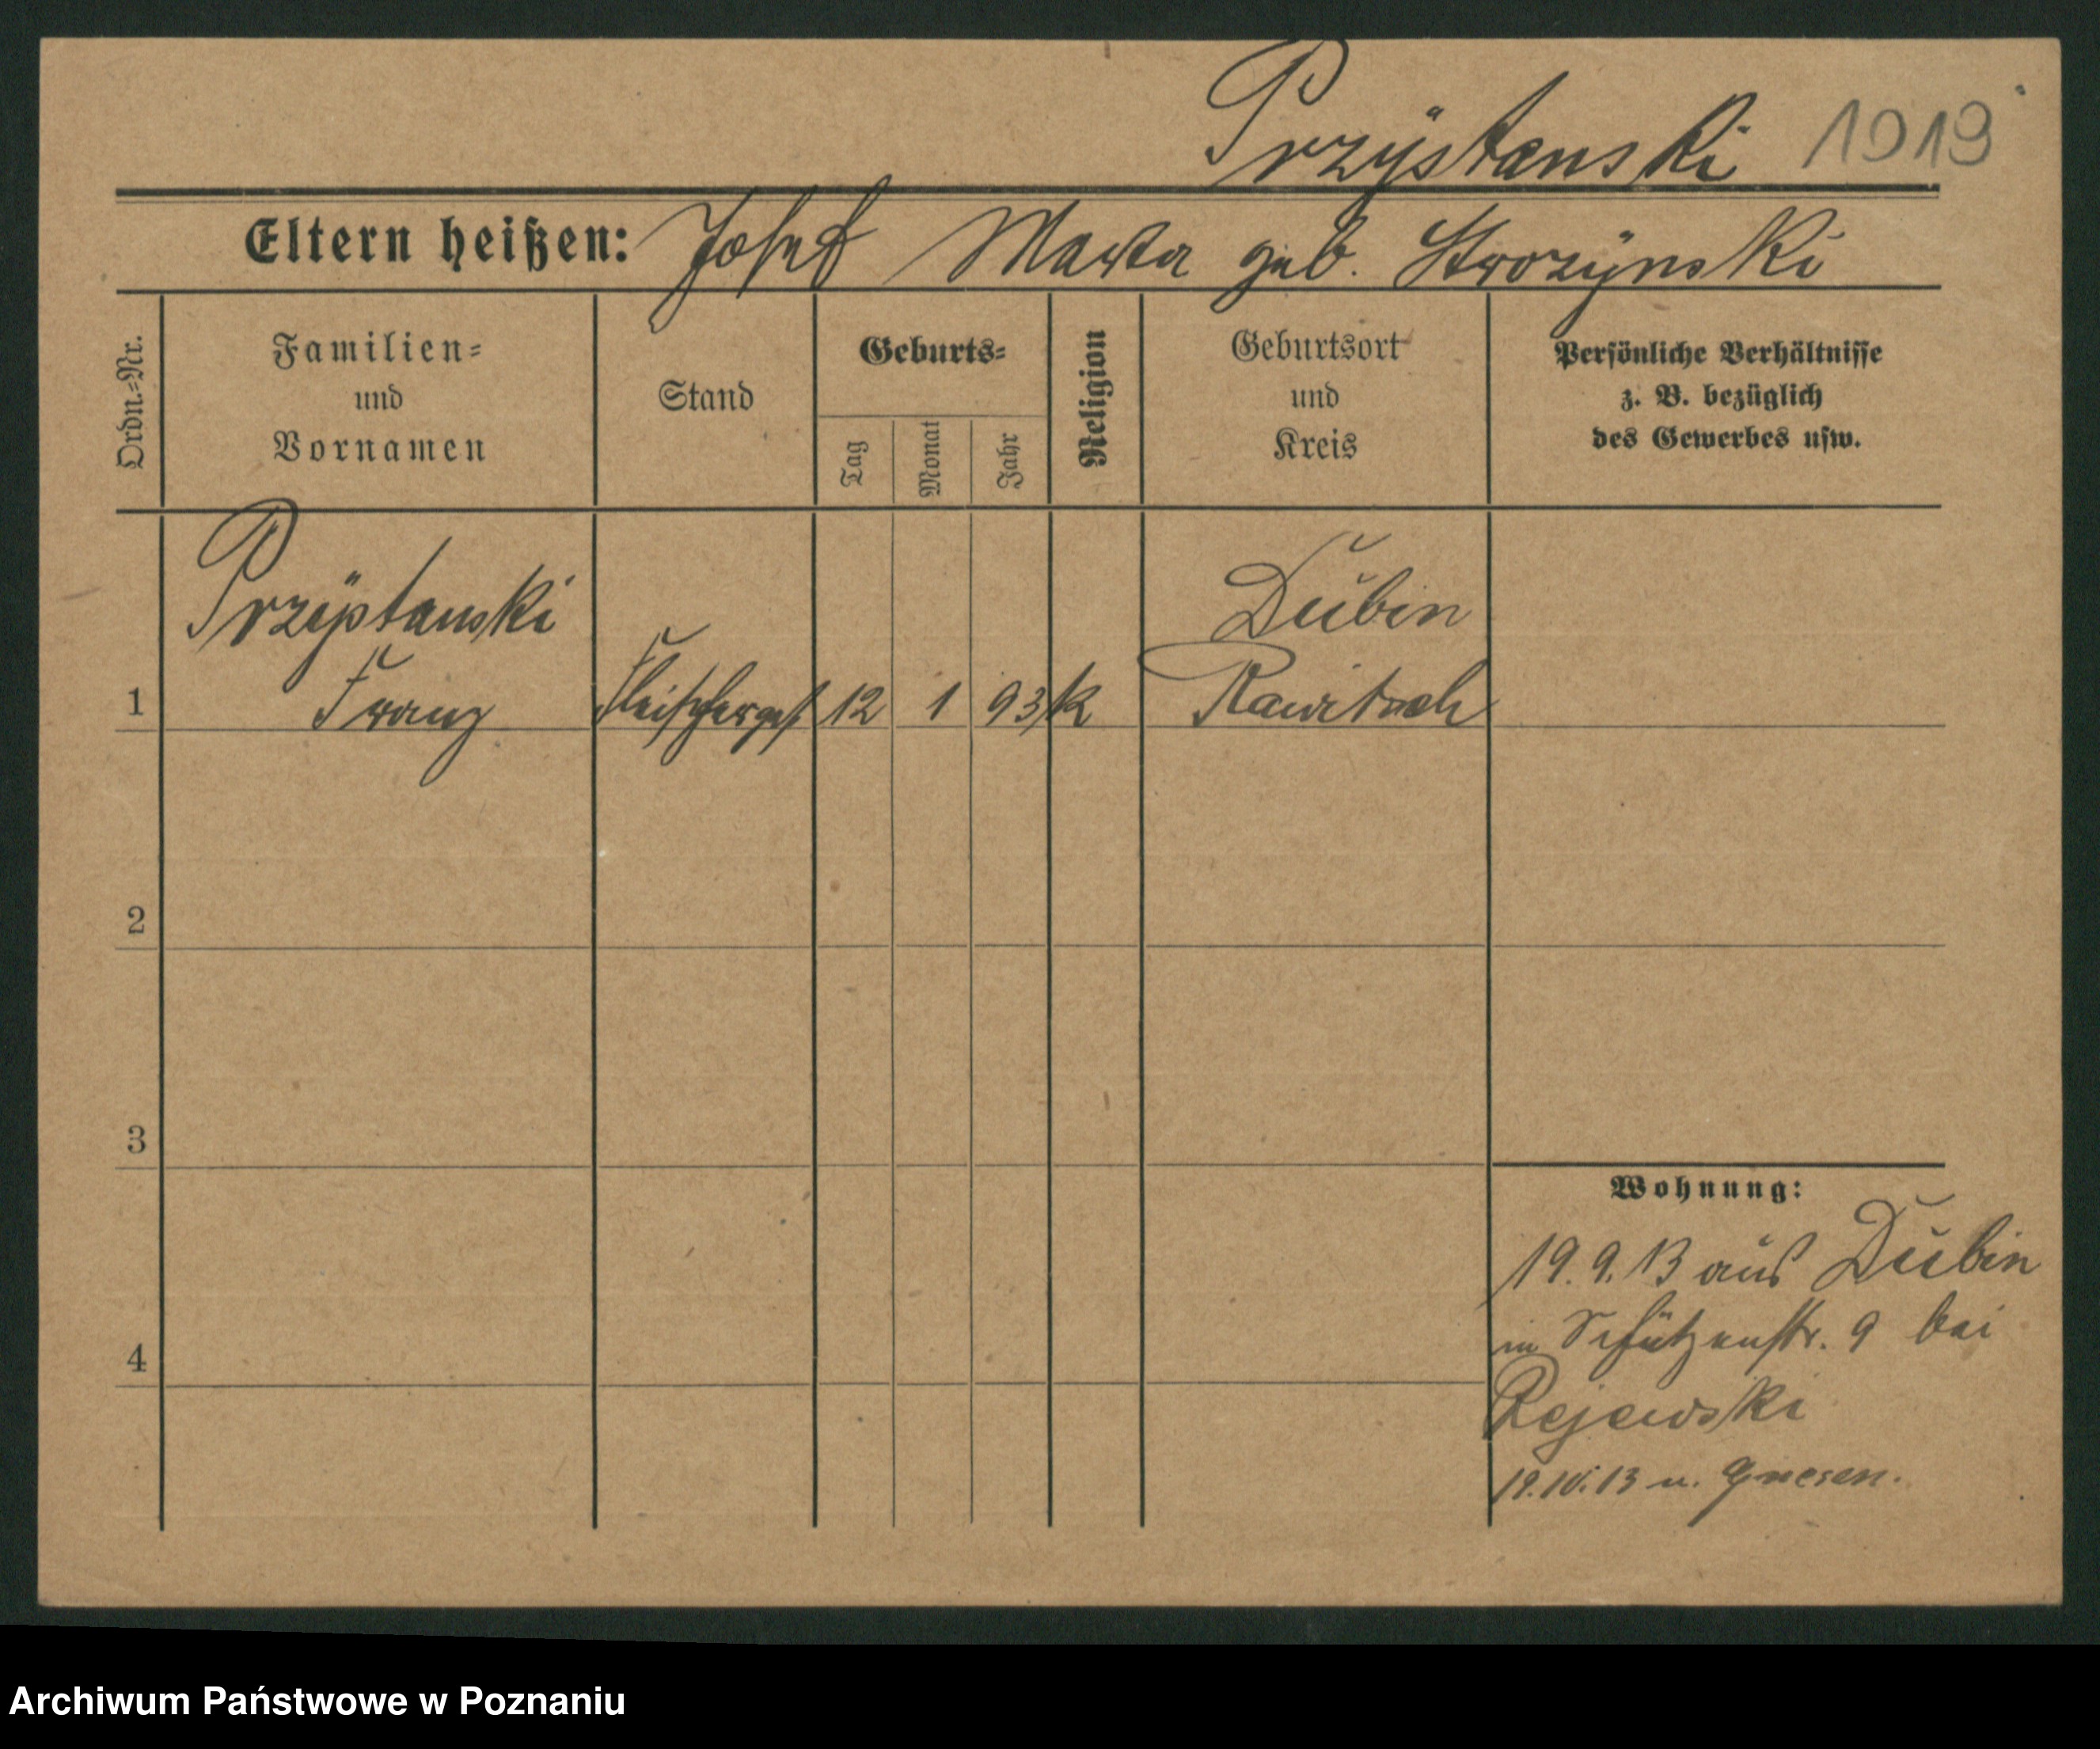 Przÿstanski 1019
Eltern heißen: Josef Marta geb. Stwozÿnski
Ordn.=Nr.
Familien=
und
Vornamen
Stand
Geburts=
Tag
Monat
Jahr
Religion
Geburtsort
und
Kreis
Persönliche Verhältnisse
z. B. bezüglich
des Gewerbes usw.
Przÿstanski
Dubin
1 Franz Fleischerges 12 1 93 k Rawitsch
2
3
4
Wohnung:
19.9.13 aus Dubin
in Schützenstr. 9 bei
Rejewski
19.10.13 n. Gnesen.
Archiwum Państwowe w Poznaniu